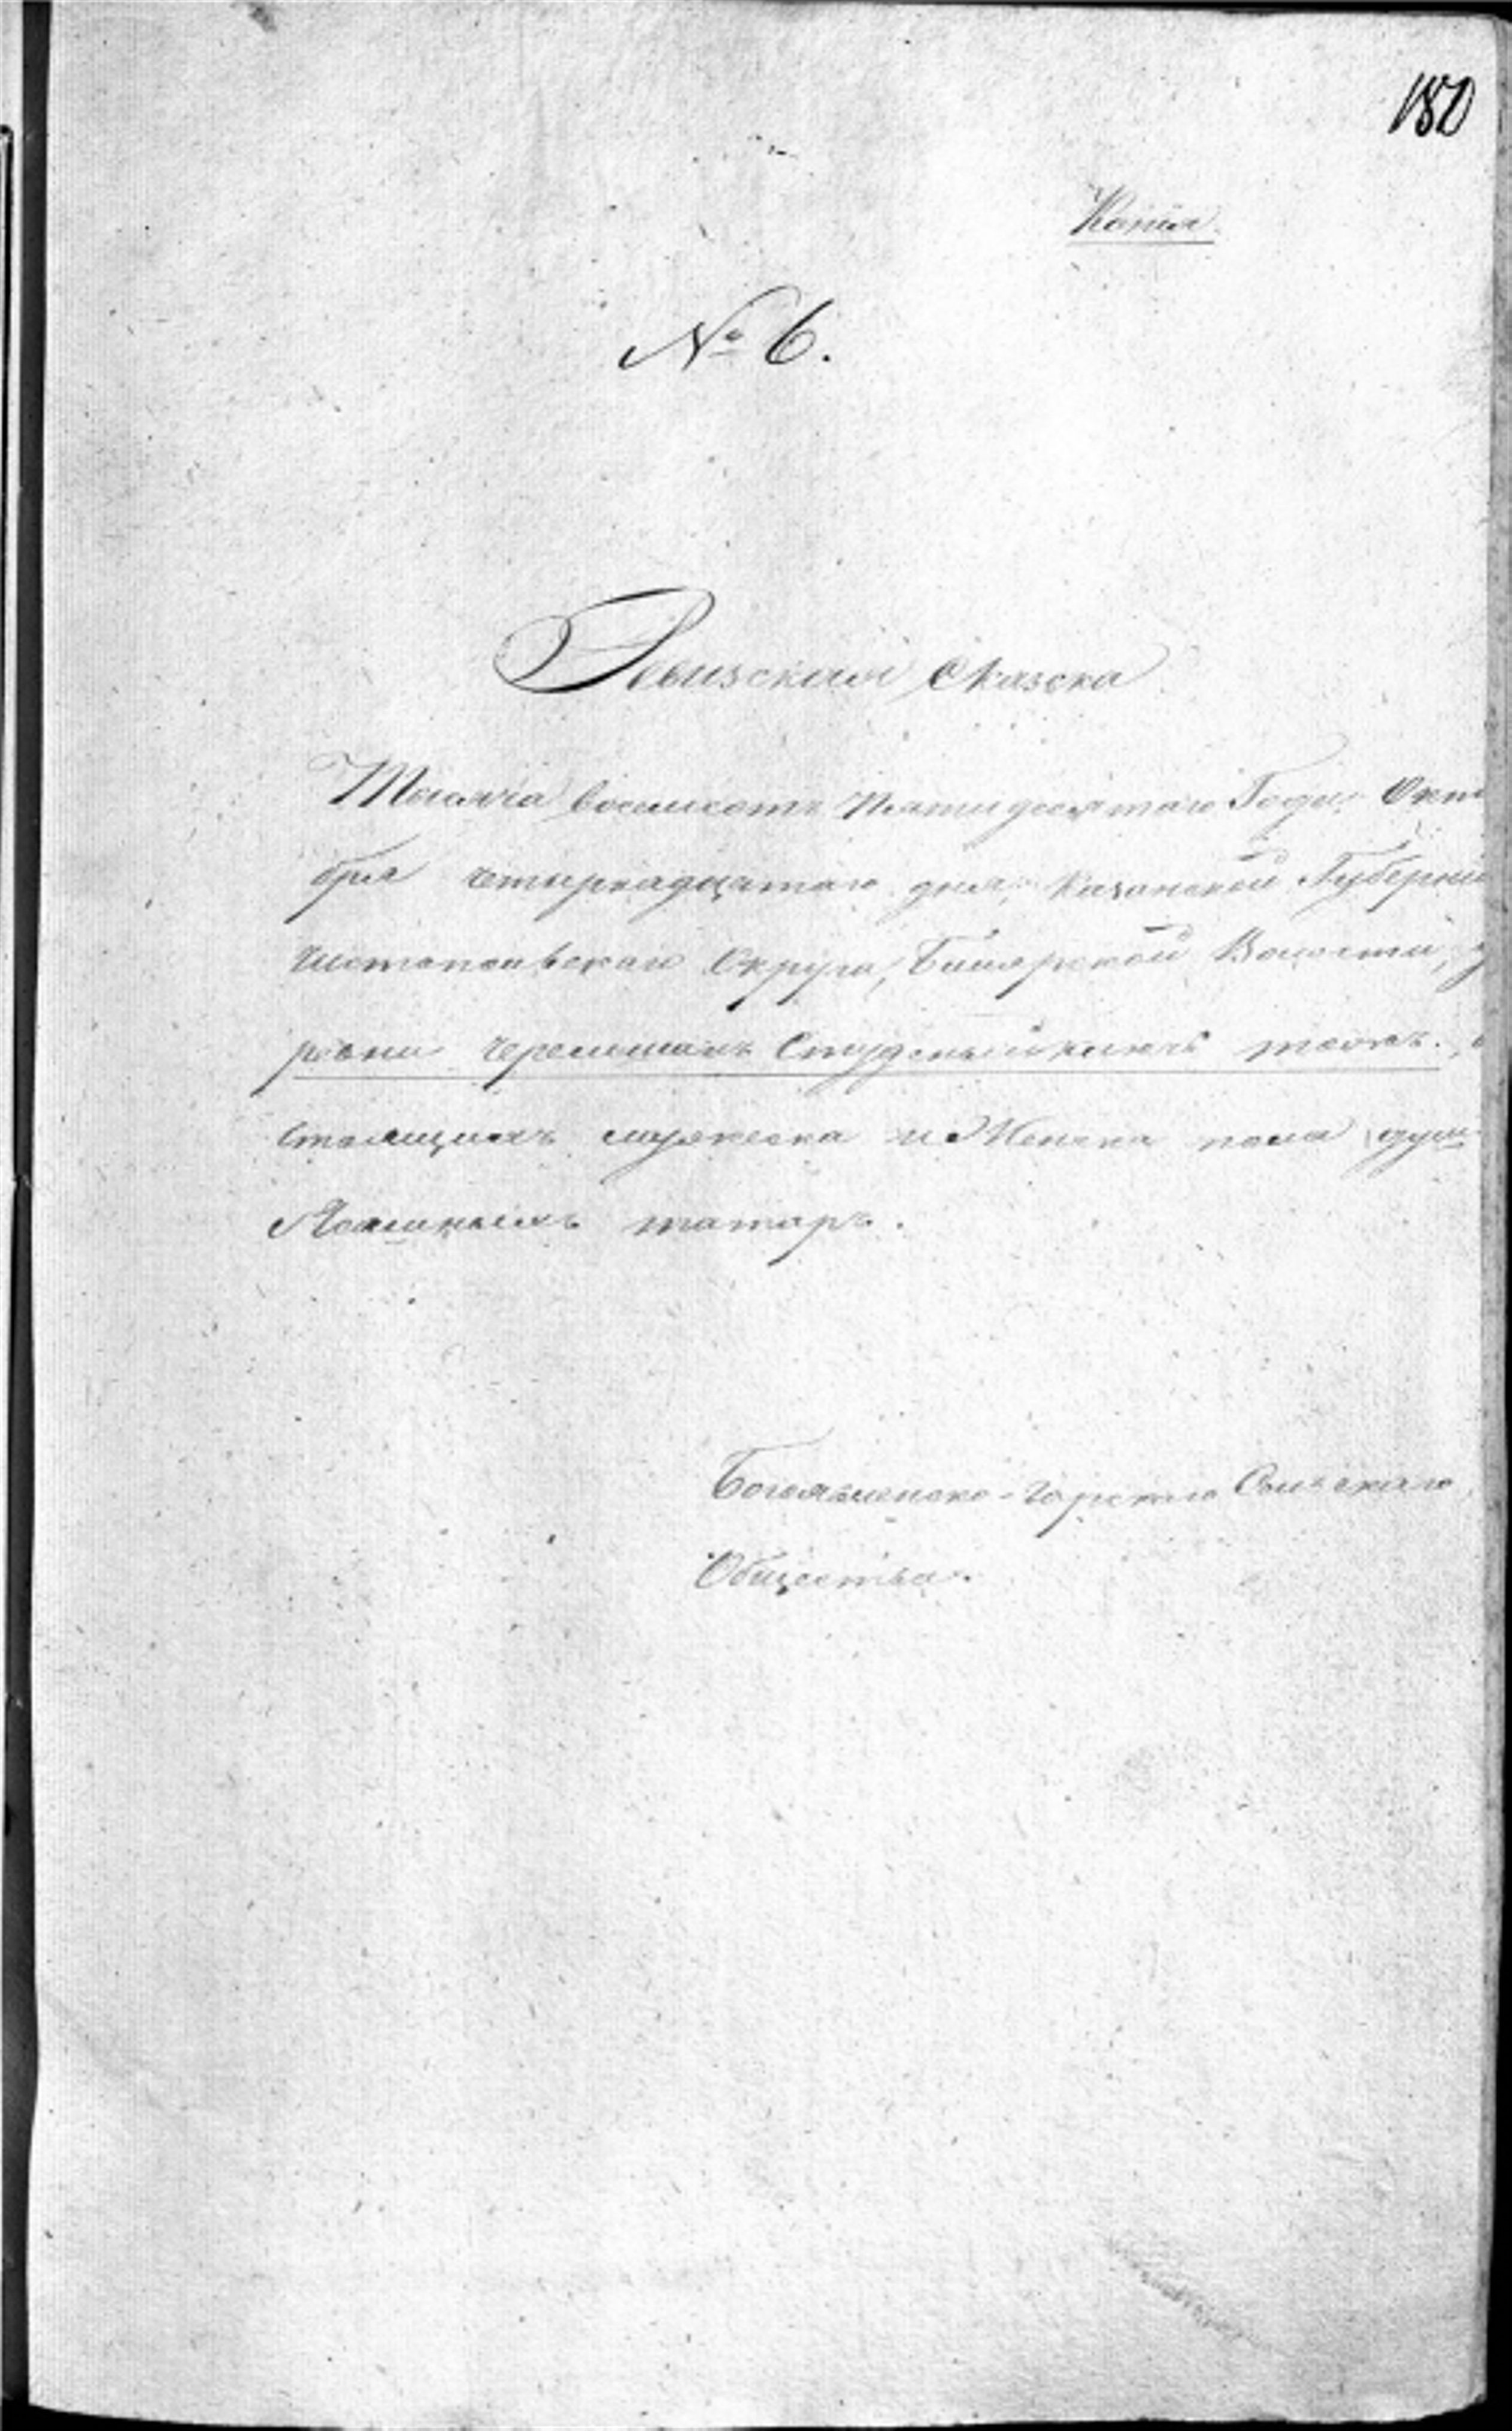 180
Копія
№ 6.
Ревизская Сказка
Тысяча восемьсотъ Пятидесятаго Года. Октя
бря четырнадцатаго дня, Казанской Губерніи
Чистопольскаго Округа, Билярской Волости, д
ревни Черемшанъ
стоящимъ мужеска и Женска пола душ
Ясашнымъ татаръ.
Богоявленско-Горскаго Сельскаго
Общества.